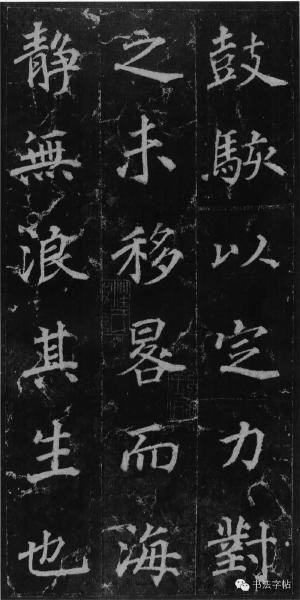 鼓駭以定力對
之未移晷而海
靜無浪其生也
书法字帖